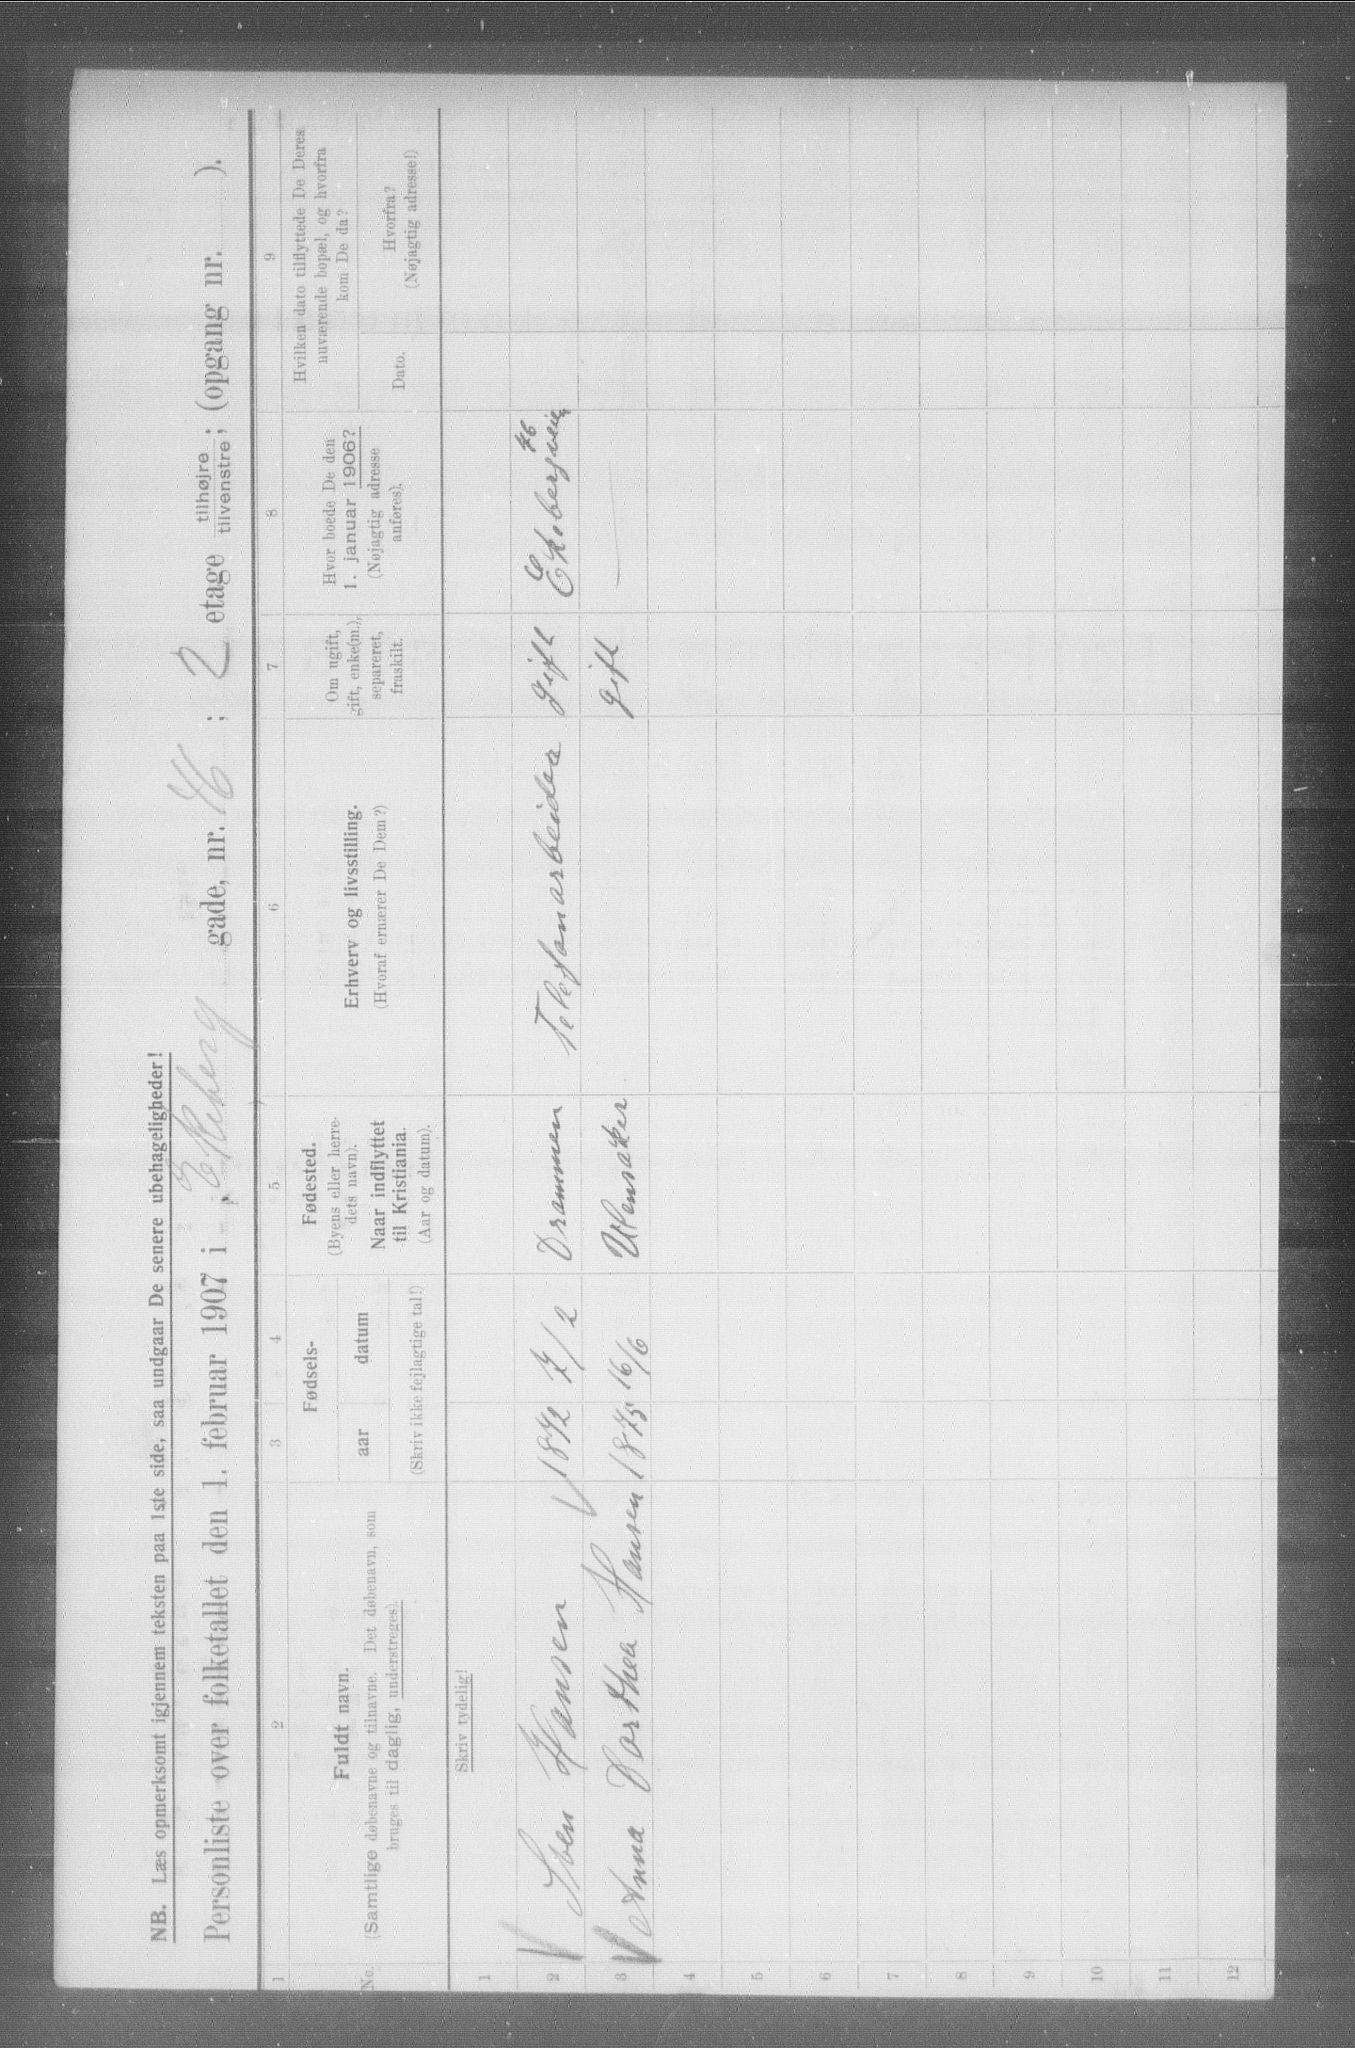 NB. Læs opmerksomt igjennem teksten paa 1ste side, saa undgaar De senere ubehageligheder!
Personliste over folketallet den 1. februar 1907 i Ekeberg gade, nr. 46 ; 2 etage tilhøjre tilvenstre ; (opgang nr. ).
1 2 3 4 5 6 7 8 9
No.
Fuldt navn.
(Samtlige døbenavne og tilnavne. Det døbenavn, som
bruges til daglig, understreges).
Fødsels-
aar datum
(Skriv ikke fejlagtige tal!)
Fødested.
(Byens eller herre-
dets navn).
Naar indflyttet
til Kristiania.
(Aar og datum).
Erhverv og livsstilling.
(Hvoraf ernærer De Dem?)
Om ugift,
gift, enke(m.),
separeret,
fraskilt.
Hvor boede De den
1. januar 1906?
(Nøjagtig adresse
anføres).
Hvilken dato tilflyttede De Deres
nuværende bopæl, og hvorfra
kom De da?
Dato.
Hvorfra?
(Nøjagtig adresse!)
Skriv tydelig!
1
2 Hansen 1872 7/2 Drammen Telefonarbeider gift Ekebergveien 46
3 Anna Dorthea Hansen 1875 16/6 Ulensaker gift —
4
5
6
7
8
9
10
11
12